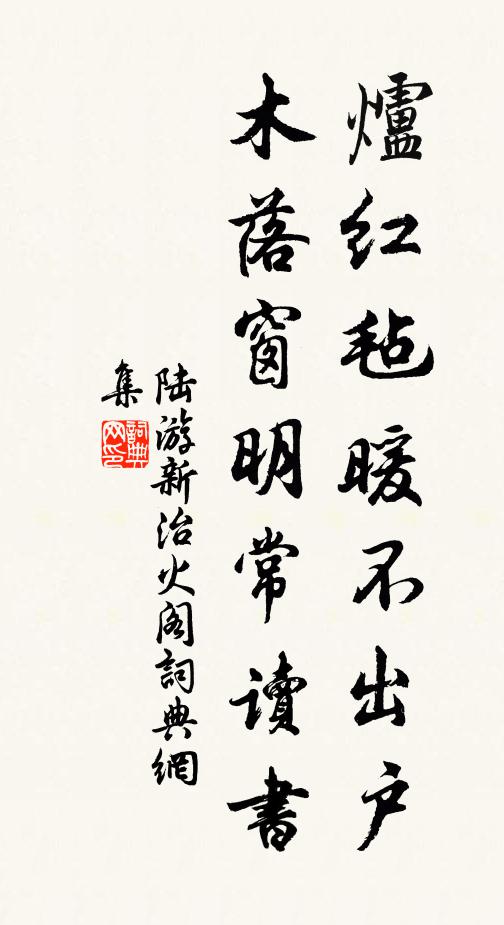 爐紅毡暖不出戶
木落窗明常讀書
陸游新治火閣詞典網
集
詞典
网印